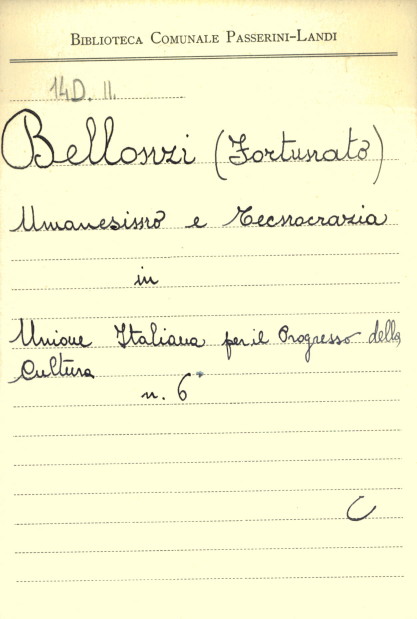 BIBLIOTECA COMUNALE PASSERINI-LANDI
14D. II.
Bellonzi (Fortunato)
Umanesimo e Tecnocrazia
in
Unione Italiana per il Progresso della
Cultura
n. 6
C